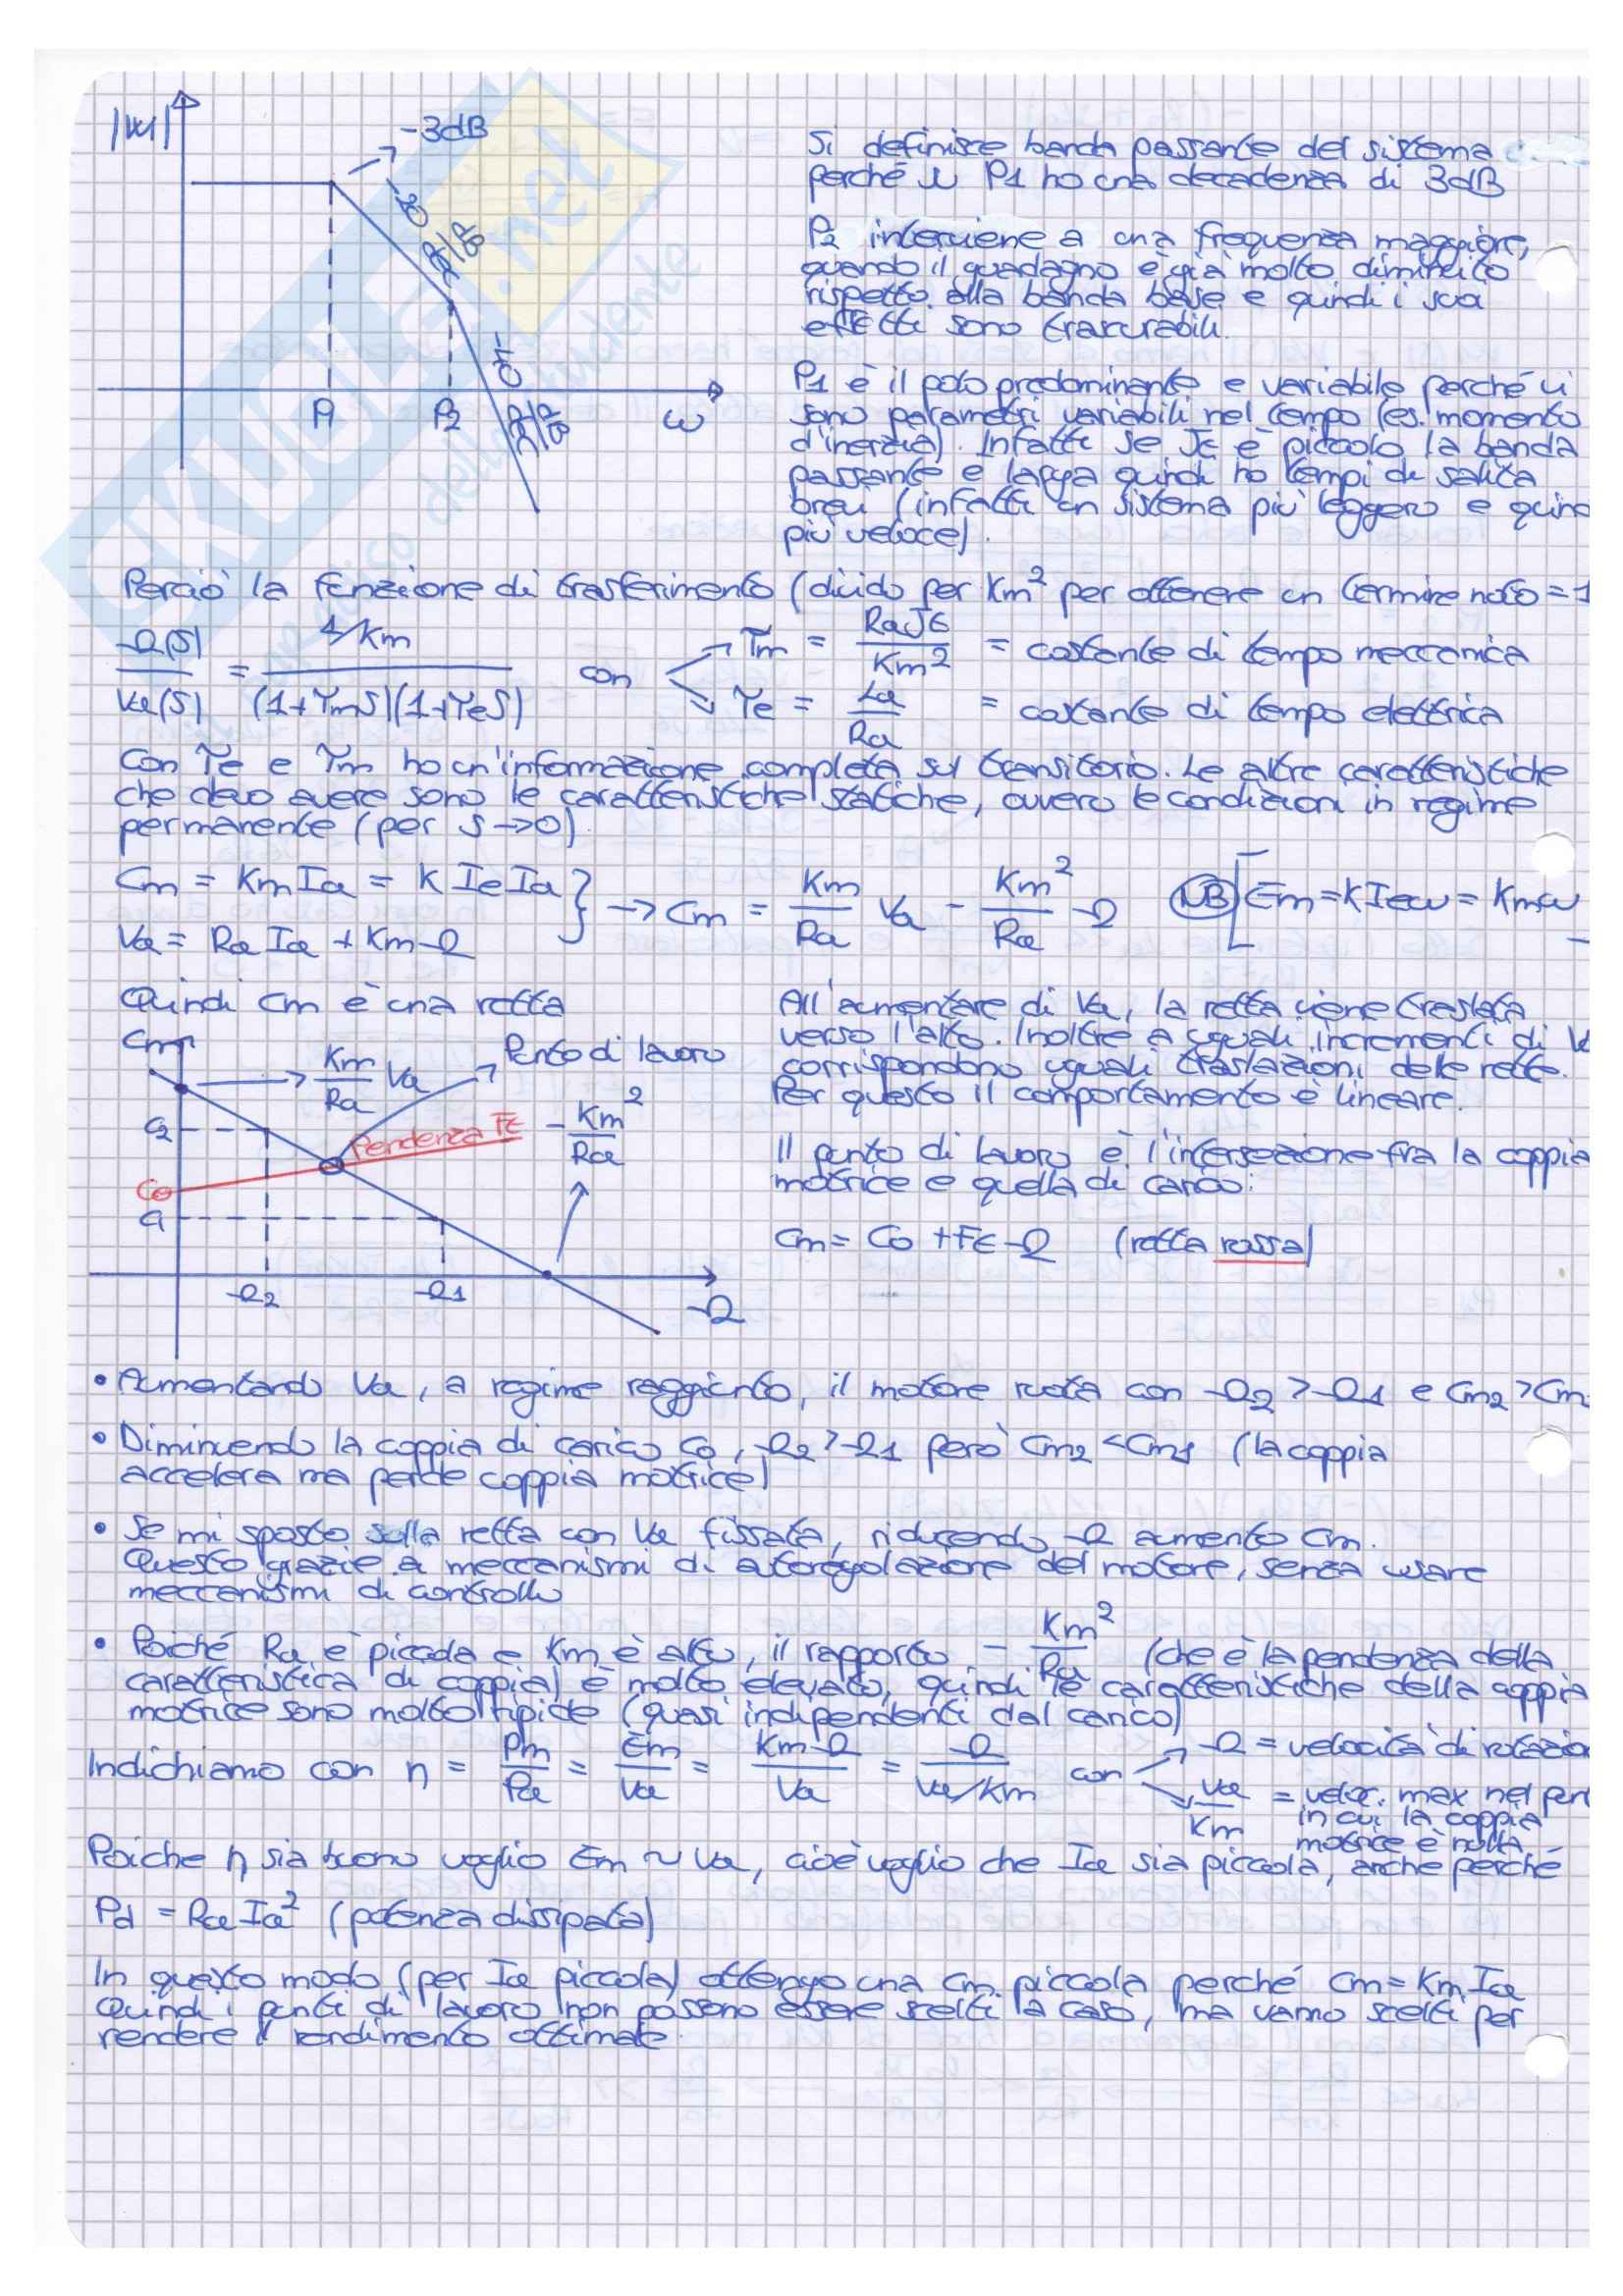 |W|
-3dB
-20 dB/dB
-40 dB/dB
P1
P2
ω
Si definisce banda passante del sistema
perché in P1 ho una decadenza di 3dB
P2 interviene a una frequenza maggiore,
quando il guadagno è già molto diminuito
rispetto alla banda base e quindi i suoi
effetti sono trascurabili.
P1 è il polo predominante e variabile perché vi
sono parametri variabili nel tempo (es. momento
d'inerzia). Infatti se Jt è piccolo la banda
passante è larga quindi ho tempi di salita
brevi (infatti un sistema più leggero è quind
più veloce).
Perciò la funzione di trasferimento (divido per Km² per ottenere un termine noto = 1
Ω(S)/Va(S) = (1/Km)/((1+τmS)(1+τeS)) con τm = RaJt/Km² = costante di tempo meccanica
τe = La/Ra = costante di tempo elettrica
Con τe e τm ho un'informazione completa sul transitorio. Le altre caratteristiche
che devo avere sono le caratteristiche statiche, ovvero le condizioni in regime
permanente (per S→0).
Cm = KmIa = K Ie Ia } → Cm = Km/Ra Va - Km²/Ra Ω (NB) [Em = KIeω = Kmω
Va = Ra Ia + KmΩ
Quindi Cm è una retta
Cm
Km/Ra Va
Punto di lavoro
C2
Pendenza Ft
-Km²/Ra
Co
C1
Ω2
Ω1
Ω
All'aumentare di Va, la retta viene traslata
verso l'alto. Inoltre a uguali incrementi di Va
corrispondono uguali traslazioni delle rette.
Per questo il comportamento è lineare.
Il punto di lavoro è l'intersezione fra la coppia
motrice e quella di carico:
Cm = Co + Ft Ω (retta rossa)
• Aumentando Va, a regime raggiunto, il motore ruota con Ω2 > Ω1 e Cm2 > Cm
• Diminuendo la coppia di carico Co, Ω2 > Ω1 però Cm2 < Cm1 (la coppia
accelera ma perde coppia motrice)
• Se mi sposto sulla retta con Va fissata, riducendo Ω aumento Cm.
Questo grazie a meccanismi di autoregolazione del motore, senza usare
meccanismi di controllo
• Poiché Ra è piccola e Km è alto, il rapporto - Km²/Ra (che è la pendenza della
caratteristica di coppia) è molto elevato, quindi le caratteristiche della coppia
motrice sono molto ripide (quasi indipendenti dal carico)
Indichiamo con η = Pm/Pa = Em/Va = KmΩ/Va = Ω/(Va/Km) con Ω = velocità di rotazio
Va/Km = veloc. max nel pun
in cui la coppia
motrice è nulla
Poiche η sia buono voglio Em ~ Va, cioè voglio che Ia sia piccola, anche perché
Pd = Ra Ia² (potenza dissipata)
In questo modo (per Ia piccola) ottengo una Cm piccola perché Cm = Km Ia
Quindi i punti di lavoro non possono essere scelti a caso, ma vanno scelti per
rendere il rendimento ottimale.